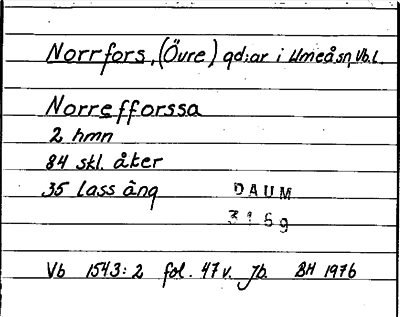 Norrfors, (Övre) gd:ar i Umeåsn, Vb.l.
Norrefforssa
2 hmn
84 skl. åker
35 lass äng
DAUM
3169
Vb 1543:2 fol. 47v. Jb. BH 1976